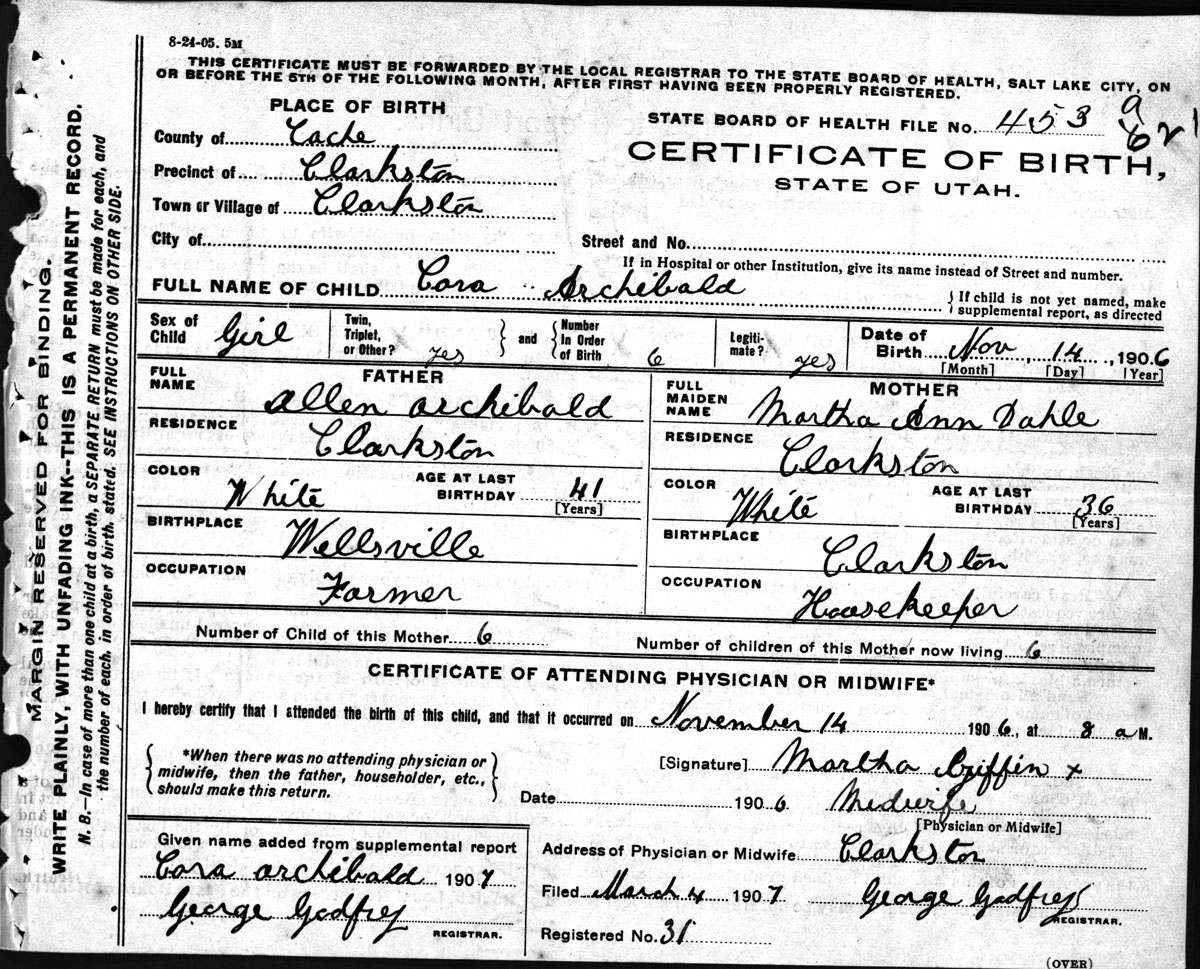 8-24-05. 5M
THIS CERTIFICATE MUST BE FORWARDED BY THE LOCAL REGISTRAR TO THE STATE BOARD OF HEALTH, SALT LAKE CITY, ON
OR BEFORE THE 5TH OF THE FOLLOWING MONTH, AFTER FIRST HAVING BEEN PROPERLY REGISTERED.
PLACE OF BIRTH
STATE BOARD OF HEALTH FILE No. 453 9
62
County of Cache
CERTIFICATE OF BIRTH,
Precinct of Clarkston
STATE OF UTAH.
Town or Village of Clarkston
City of
Street and No.
If in Hospital or other Institution, give its name instead of Street and number.
FULL NAME OF CHILD Cora Archibald
} If child is not yet named, make
supplemental report, as directed
Sex of Child Girl
Twin, Triplet, or Other? yes
and
Number In Order of Birth 6
Legiti-mate? yes
Date of Birth Nov 14, 1906
[Month] [Day] [Year]
FATHER
FULL NAME
Allen Archibald
RESIDENCE
Clarkston
COLOR
White
AGE AT LAST BIRTHDAY 41
[Years]
BIRTHPLACE
Wellsville
OCCUPATION
Farmer
MOTHER
FULL MAIDEN NAME
Martha Ann Dahle
RESIDENCE
Clarkston
COLOR
White
AGE AT LAST BIRTHDAY 36
[Years]
BIRTHPLACE
Clarkston
OCCUPATION
Housekeeper
Number of Child of this Mother 6
Number of children of this Mother now living 6
CERTIFICATE OF ATTENDING PHYSICIAN OR MIDWIFE*
I hereby certify that I attended the birth of this child, and that it occurred on November 14 1906, at 8 a M.
*When there was no attending physician or
midwife, then the father, householder, etc.,
should make this return.
[Signature] Martha Griffin x
Date 1906 Midwife
[Physician or Midwife]
Given name added from supplemental report
Cora Archibald 1907
George Godfrey
REGISTRAR.
Address of Physician or Midwife Clarkston
Filed March 4 1907 George Godfrey
REGISTRAR.
Registered No. 31
(OVER)
MARGIN RESERVED FOR BINDING.
WRITE PLAINLY, WITH UNFADING INK--THIS IS A PERMANENT RECORD.
N. B.--In case of more than one child at a birth, a SEPARATE RETURN must be made for each, and
the number of each, in order of birth, stated. SEE INSTRUCTIONS ON OTHER SIDE.